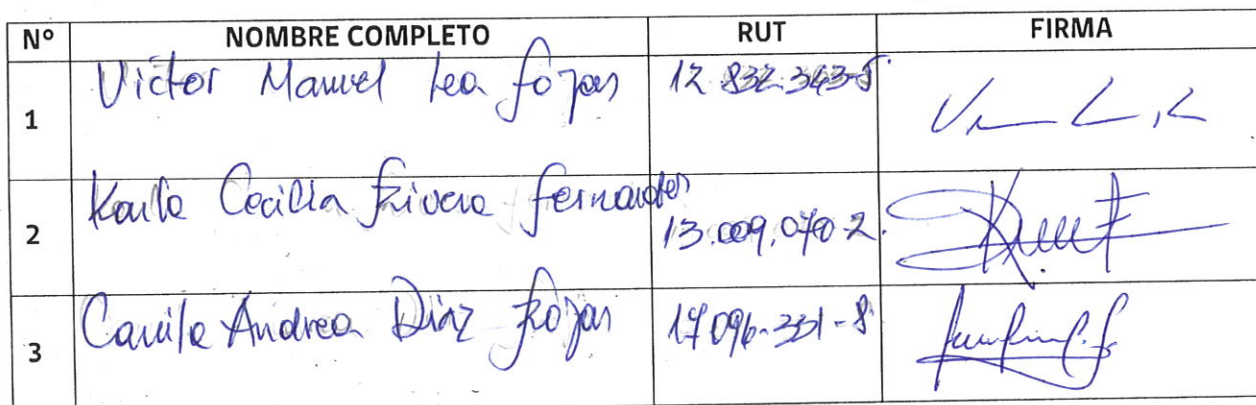 Nº NOMBRE COMPLETO RUT FIRMA
1 Victor Manuel Lea Rojas 12.832.343-5
2 Karla Cecilia Rivera Fernandez 13.009.070-2
3 Camila Andrea Diaz Rojas 17.096-331-8